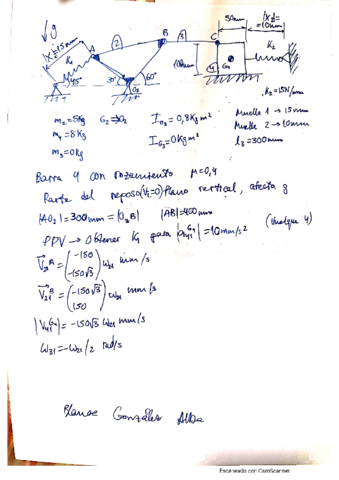 ↓g
|X₁|=15mm
K₁
45°
A
2
30°
60°
O₂
B
3
C
50mm
|X₂|=10mm
100mm
4
G₄
K₂
m₂=5Kg G₂=O₂ I_G₂=0,8Kg m²
m₄=8Kg I_G₃=0Kg m²
m₃=0Kg
K₂=15N/mm
Muelle 1 → 15mm
Muelle 2 → 10mm
l₃=300mm
Barra 4 con rozamiento μ=0,4
Parte del reposo (V₁=0) Plano vertical, afecta g
|AO₂|=300mm=|O₂B| |AB|=400mm
PPV → Obtener K₁ para |a₄₁^G₄|=10mm/s² (Vuelque 4)
V₂₁^A = (-150, -150√3) ω₂₁ mm/s
V₂₁^B = (-150√3, 150) ω₂₁ mm/s
|V₄₁^G₄| = -150√3 ω₂₁ mm/s
ω₃₁ = -ω₂₁/2 rad/s
González Alba
Escaneado con CamScanner